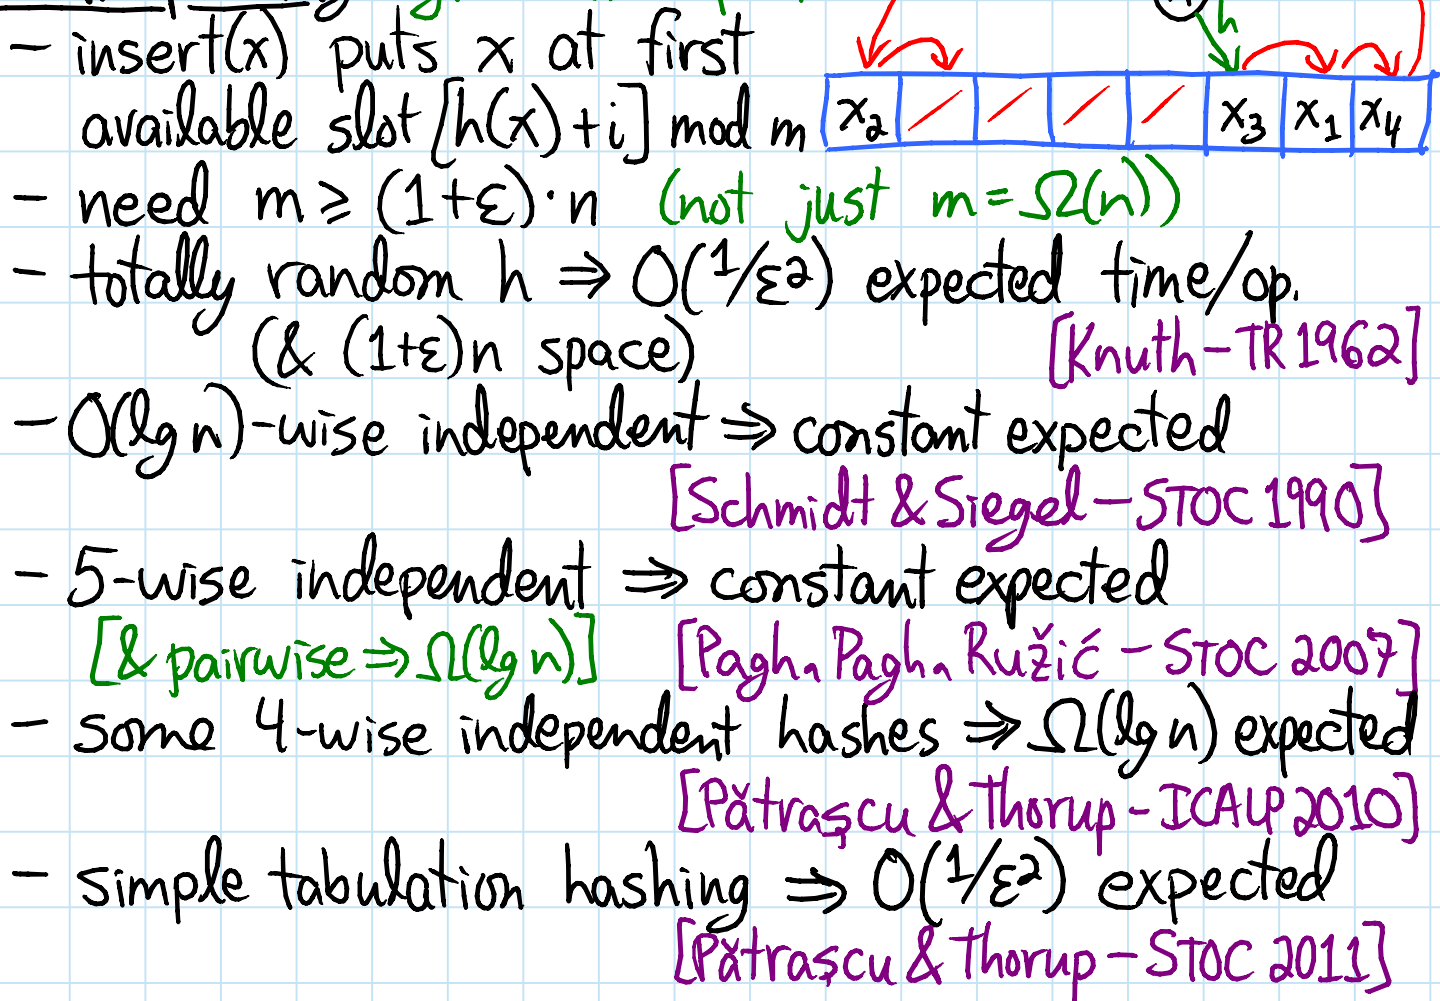 - insert(x) puts x at first
h
available slot [h(x)+i] mod m
x₂ x₃ x₁ x₄
- need m ≥ (1+ε)·n (not just m=Ω(n))
- totally random h ⇒ O(1/ε²) expected time/op.
(& (1+ε)n space) [Knuth-TR 1962]
- O(lg n)-wise independent ⇒ constant expected
[Schmidt & Siegel - STOC 1990]
- 5-wise independent ⇒ constant expected
[& pairwise ⇒ Ω(lg n)] [Pagh, Pagh, Ružić - STOC 2007]
- some 4-wise independent hashes ⇒ Ω(lg n) expected
[Pătraşcu & Thorup - ICALP 2010]
- simple tabulation hashing ⇒ O(1/ε²) expected
[Pătraşcu & Thorup - STOC 2011]